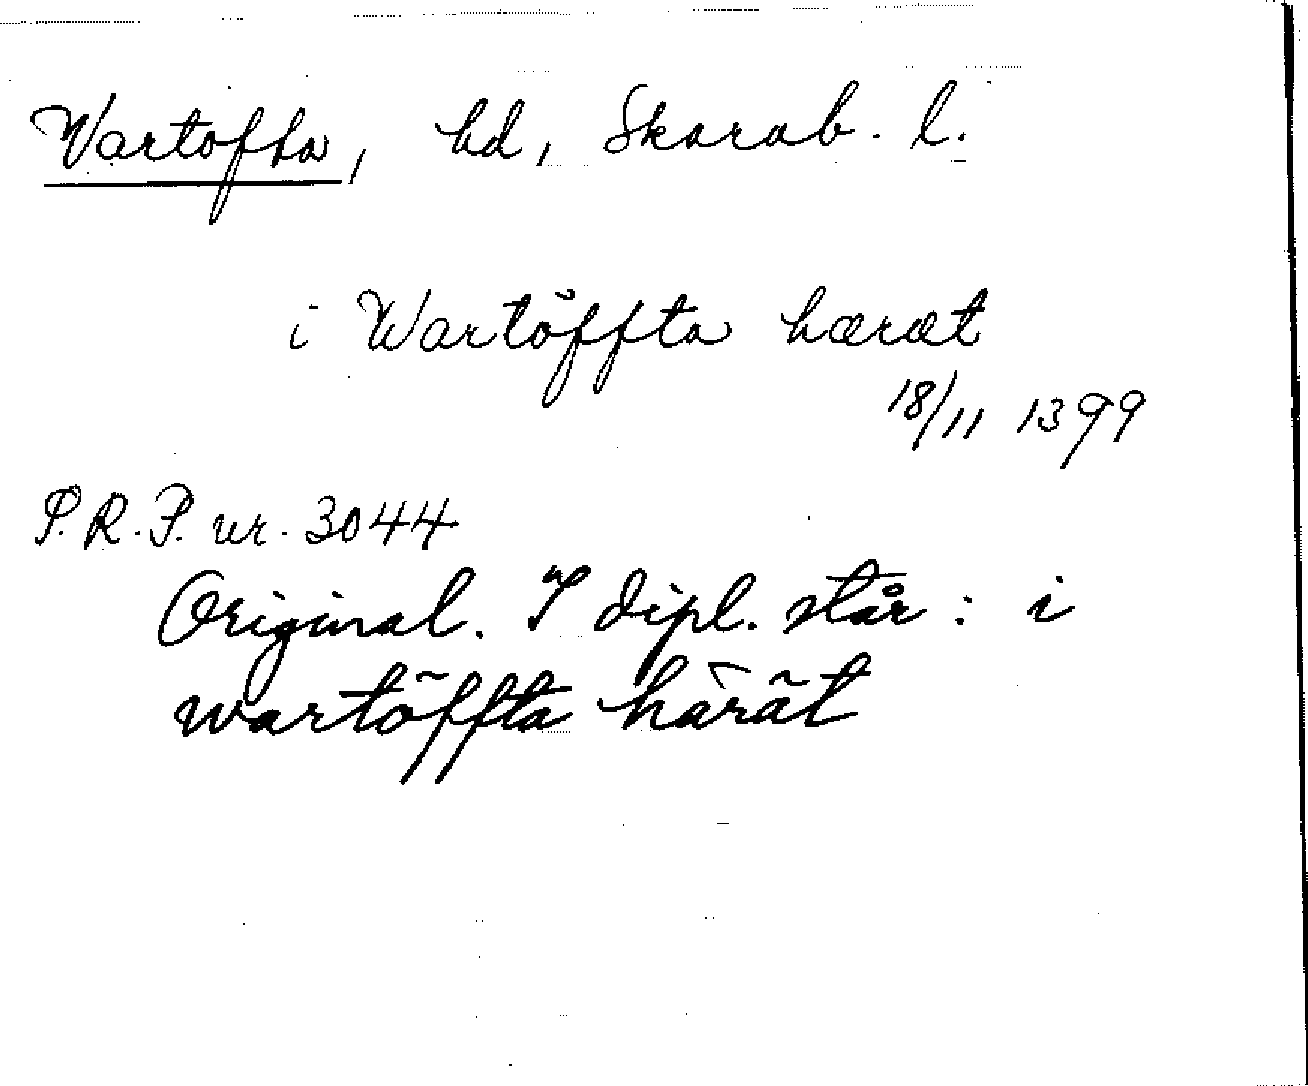 Vartofta, hd, Skarab. l.
i Wartöffta hæræt
18/11 1399
P.R.P. nr. 3044
Original. I dipl. står : i
wartöffta härät